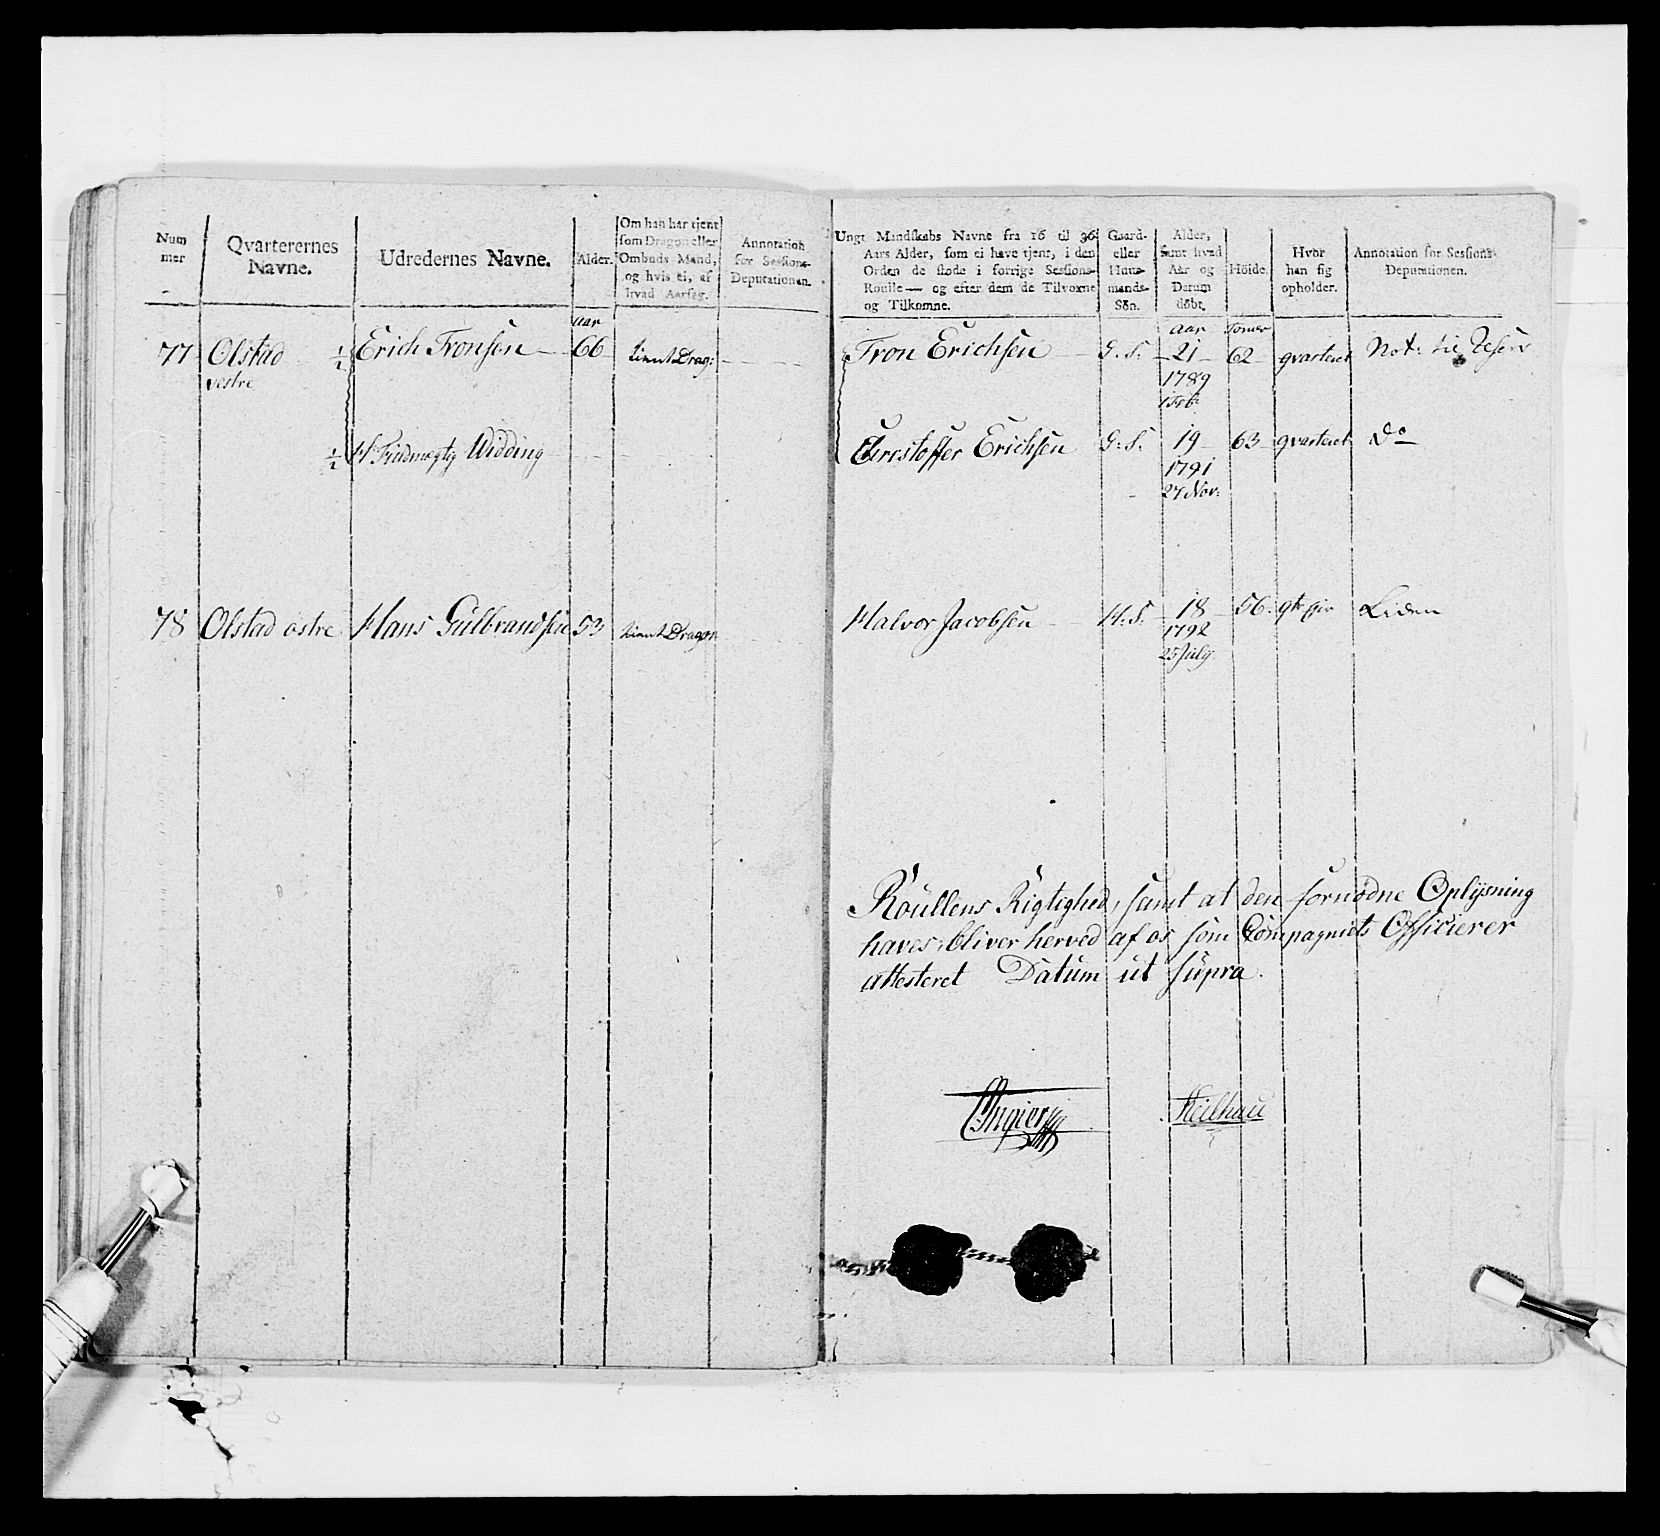 Num
mer
Qvarterernes
Navne.
Udredernes Navne.
Alder.
Om han har tjent
som Dragon eller
Ombuds Mand,
og hvis ei, af
hvad Aarsag.
Annotation
for Sessions-
Deputationen.
Ungt Mandskabs Navne fra 16 til 36
Aars Alder, som ei have tjent, i den
Orden de stode i forrige Sessions-
Roulle — og efter dem de Tilvoxne
og Tilkomne.
Gaard-
eller
Huus-
mands-
Sön.
Alder,
samt hvad
Aar og
Datum
döbt.
Höide.
Hvor
han sig
opholder.
Annotation for Sessions-
Deputationen.
Aar
Aar Tomer
77 Olstad 1/2 Erich Tronsen 66 tient Drag:
vestre
Tron Erichsen G. S. 21 62 qvarteret Not: til Reserv
1789
1 Feb:
1/2 Hr Fuldmegtig Widding
Christoffer Erichsen G. S. 19 63 qvarteret Do
1791
27 Nov:
78 Olstad östre Hans Gulbrandsen 53 tient Dragon
Halvor Jacobsen H. S. 18 56 Liden
1792
25 July
Roullens Rigtighed, samt at den fornödne Oplysning
haves, bliver herved af os som Compagniets Officierer
attesteret Datum ut supra.
Angier Keilhau